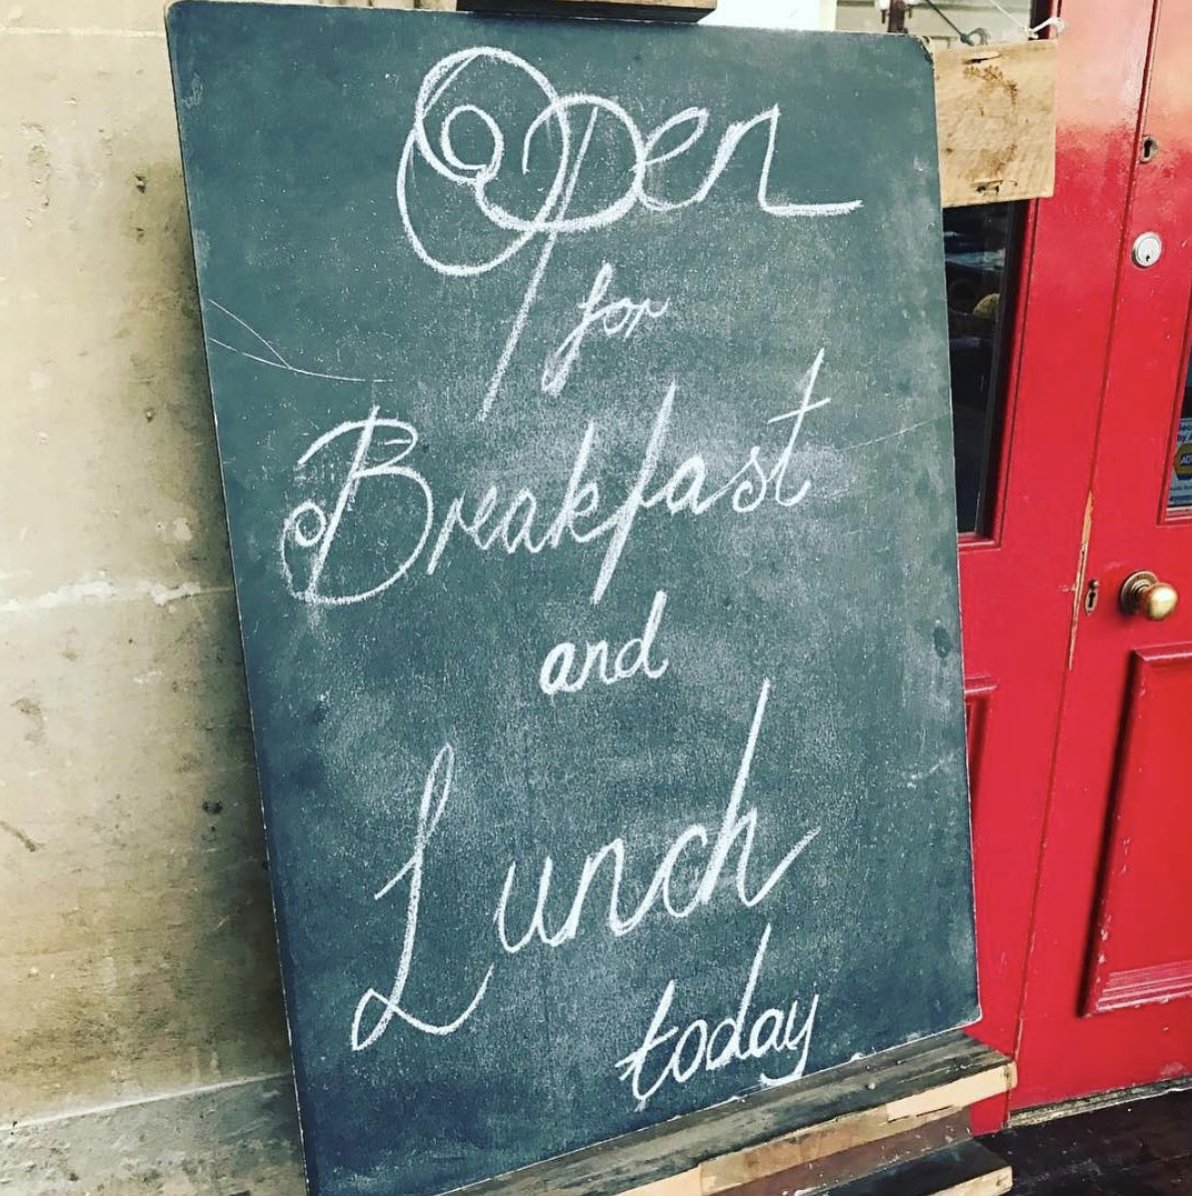 Open
for
Breakfast
and
Lunch
today